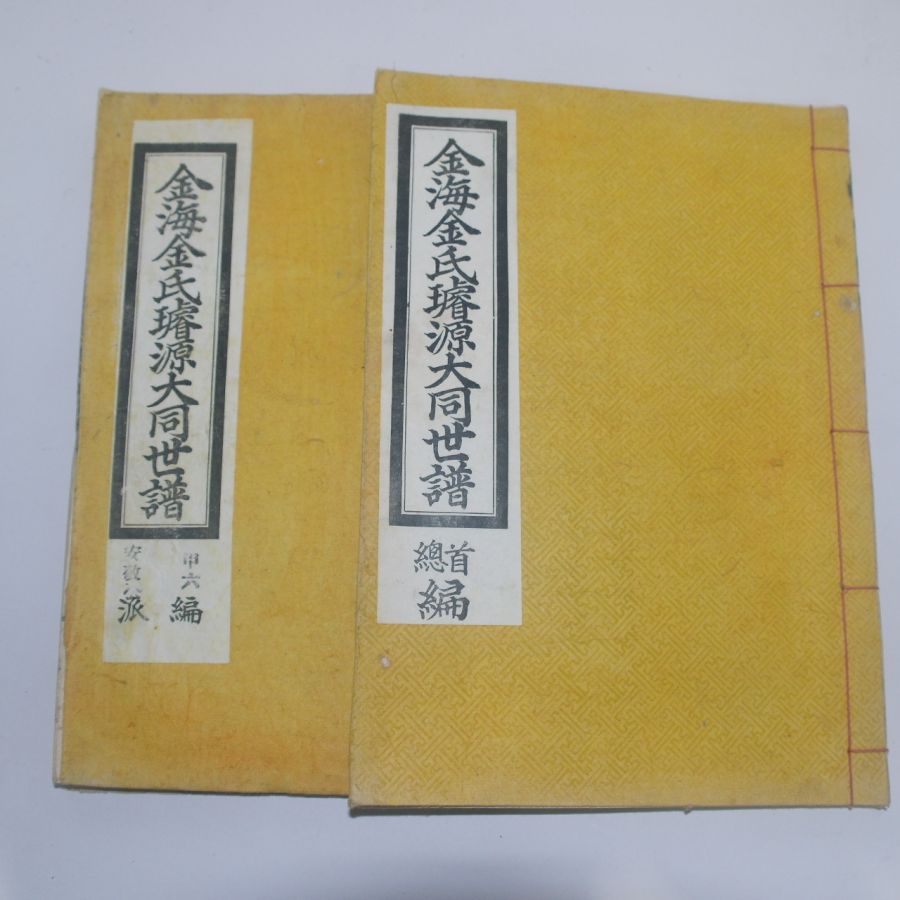 金海金氏璿源大同世譜
首
總
編
金海金氏璿源大同世譜
甲六編
派